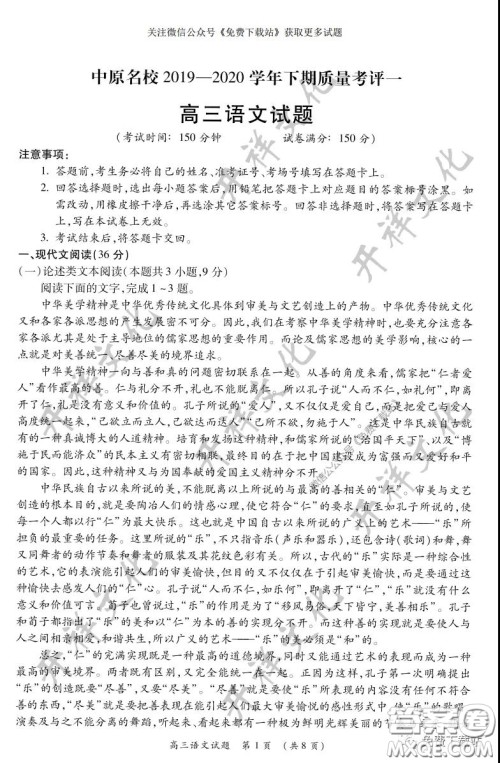 关注微信公众号《免费下载站》获取更多试题
中原名校 2019—2020 学年下期质量考评一
高三语文试题
(考试时间：150 分钟 试卷满分：150 分)
注意事项：
1. 答题前，考生务必将自己的姓名、准考证号、考场号填写在答题卡上。
2. 回答选择题时，选出每小题答案后，用铅笔把答题卡上对应题目的答案标号涂黑。如
需改动，用橡皮擦干净后，再选涂其它答案标号。回答非选择题时，将答案写在答题卡
上，写在本试卷上无效。
3. 考试结束后，将答题卡交回。
一、现代文阅读(36 分)
(一)论述类文本阅读(本题共 3 小题，9 分)
阅读下面的文字，完成 1～3 题。
中华美学精神是中华优秀传统文化具体到审美与文艺创造上的产物。中华优秀传统文化
又和各家各派思想的产生发展密不可分。因此，我们在考察中华美学精神时，也要充分注意各
家各派尤其是处于主导地位的儒家思想的重要作用。而论及儒家思想的美学影响，核心的一
点就是对美善统一、尽善尽美的境界追求。
中华美学精神一向与善和真的问题密切联系在一起。从善的角度来看，儒家把“仁者爱
人”看作最高的善。仁与礼分不开，礼也不能脱离仁。所以孔子说“人而不仁，如礼何”，即离
开了仁，礼是没有意义和价值的。孔子所说的“爱人”，又不仅仅是爱自己，而是把自爱与爱人
高度统一起来，“己欲立而立人，己欲达而达人”“己所不欲，勿施于人”。这是中华民族自古就
有的一种真诚博大的人道精神。培育和发扬这种精神，和儒家所说的“治国平天下”，以及“博
施于民而能济众”的民本主义有密切相联，最终的目的在于把中国建设成一个富强而又爱好和平
的国家。因此，这种精神又与为国奉献的爱国主义精神分不开。
中华民族自古以来所说的美，不能脱离以上所说的与最高的善相关的“仁”。审美与文艺
创造的根本目的，就是要陶冶人们的情感、心理，使它符合“仁”的要求，也就是孔子所说的，使
每一个人都以行“仁”为最大快乐。这也就是中国自古以来所说的广义上的艺术——“乐”所
担负的最重要的任务。这里所说的“乐”，不只指音乐(声乐和器乐)，还包含诗(歌词)和舞，舞
又同舞者的动作节奏和舞者的服装及其花纹色彩有关。所以，古代的“乐”实际是一种综合性
的艺术，它的表演能引起人们的审美愉快，但目的又不仅仅在引起审美愉快，而是要通过这种审
美愉快去感发人们的“仁”心。这就是孔子所说的“人而不仁，如乐何”，即离开了“仁”，“乐”就没有什么
意义和价值可言。荀子也曾说过，“乐”的作用是为了“移风易俗，天下皆宁，美善相乐”。孔子
和荀子都主张广义的艺术——“乐”应当给人以审美愉快，但又都认为这种愉快应当能促使人与
人之间相亲相爱，和谐共生，所以广义的艺术——“乐”的美必须是“和”的。
仁的实现能成就完美实现是一种最高的道德境界，同时又能通过艺术的表现而成为一种
最高的审美境界。两者既有区别，又完全能统一起来。在上述思想的基础上，孔子第一次明确提出
“乐”的创造既要“尽美”，又要“尽善”。“尽善”就是要使“乐”所表现的内容没有任何不符合
善的东西，“尽美”就是要使“乐”所表现的善的内容有最能感动人们审美愉悦的感性形式，使“乐”的歌唱
演奏及与之不能分离的舞蹈，听起来、看起来都成为一种极为鲜明光辉美丽的
高三语文试题 第 1 页 (共 8 页)
开祥文化